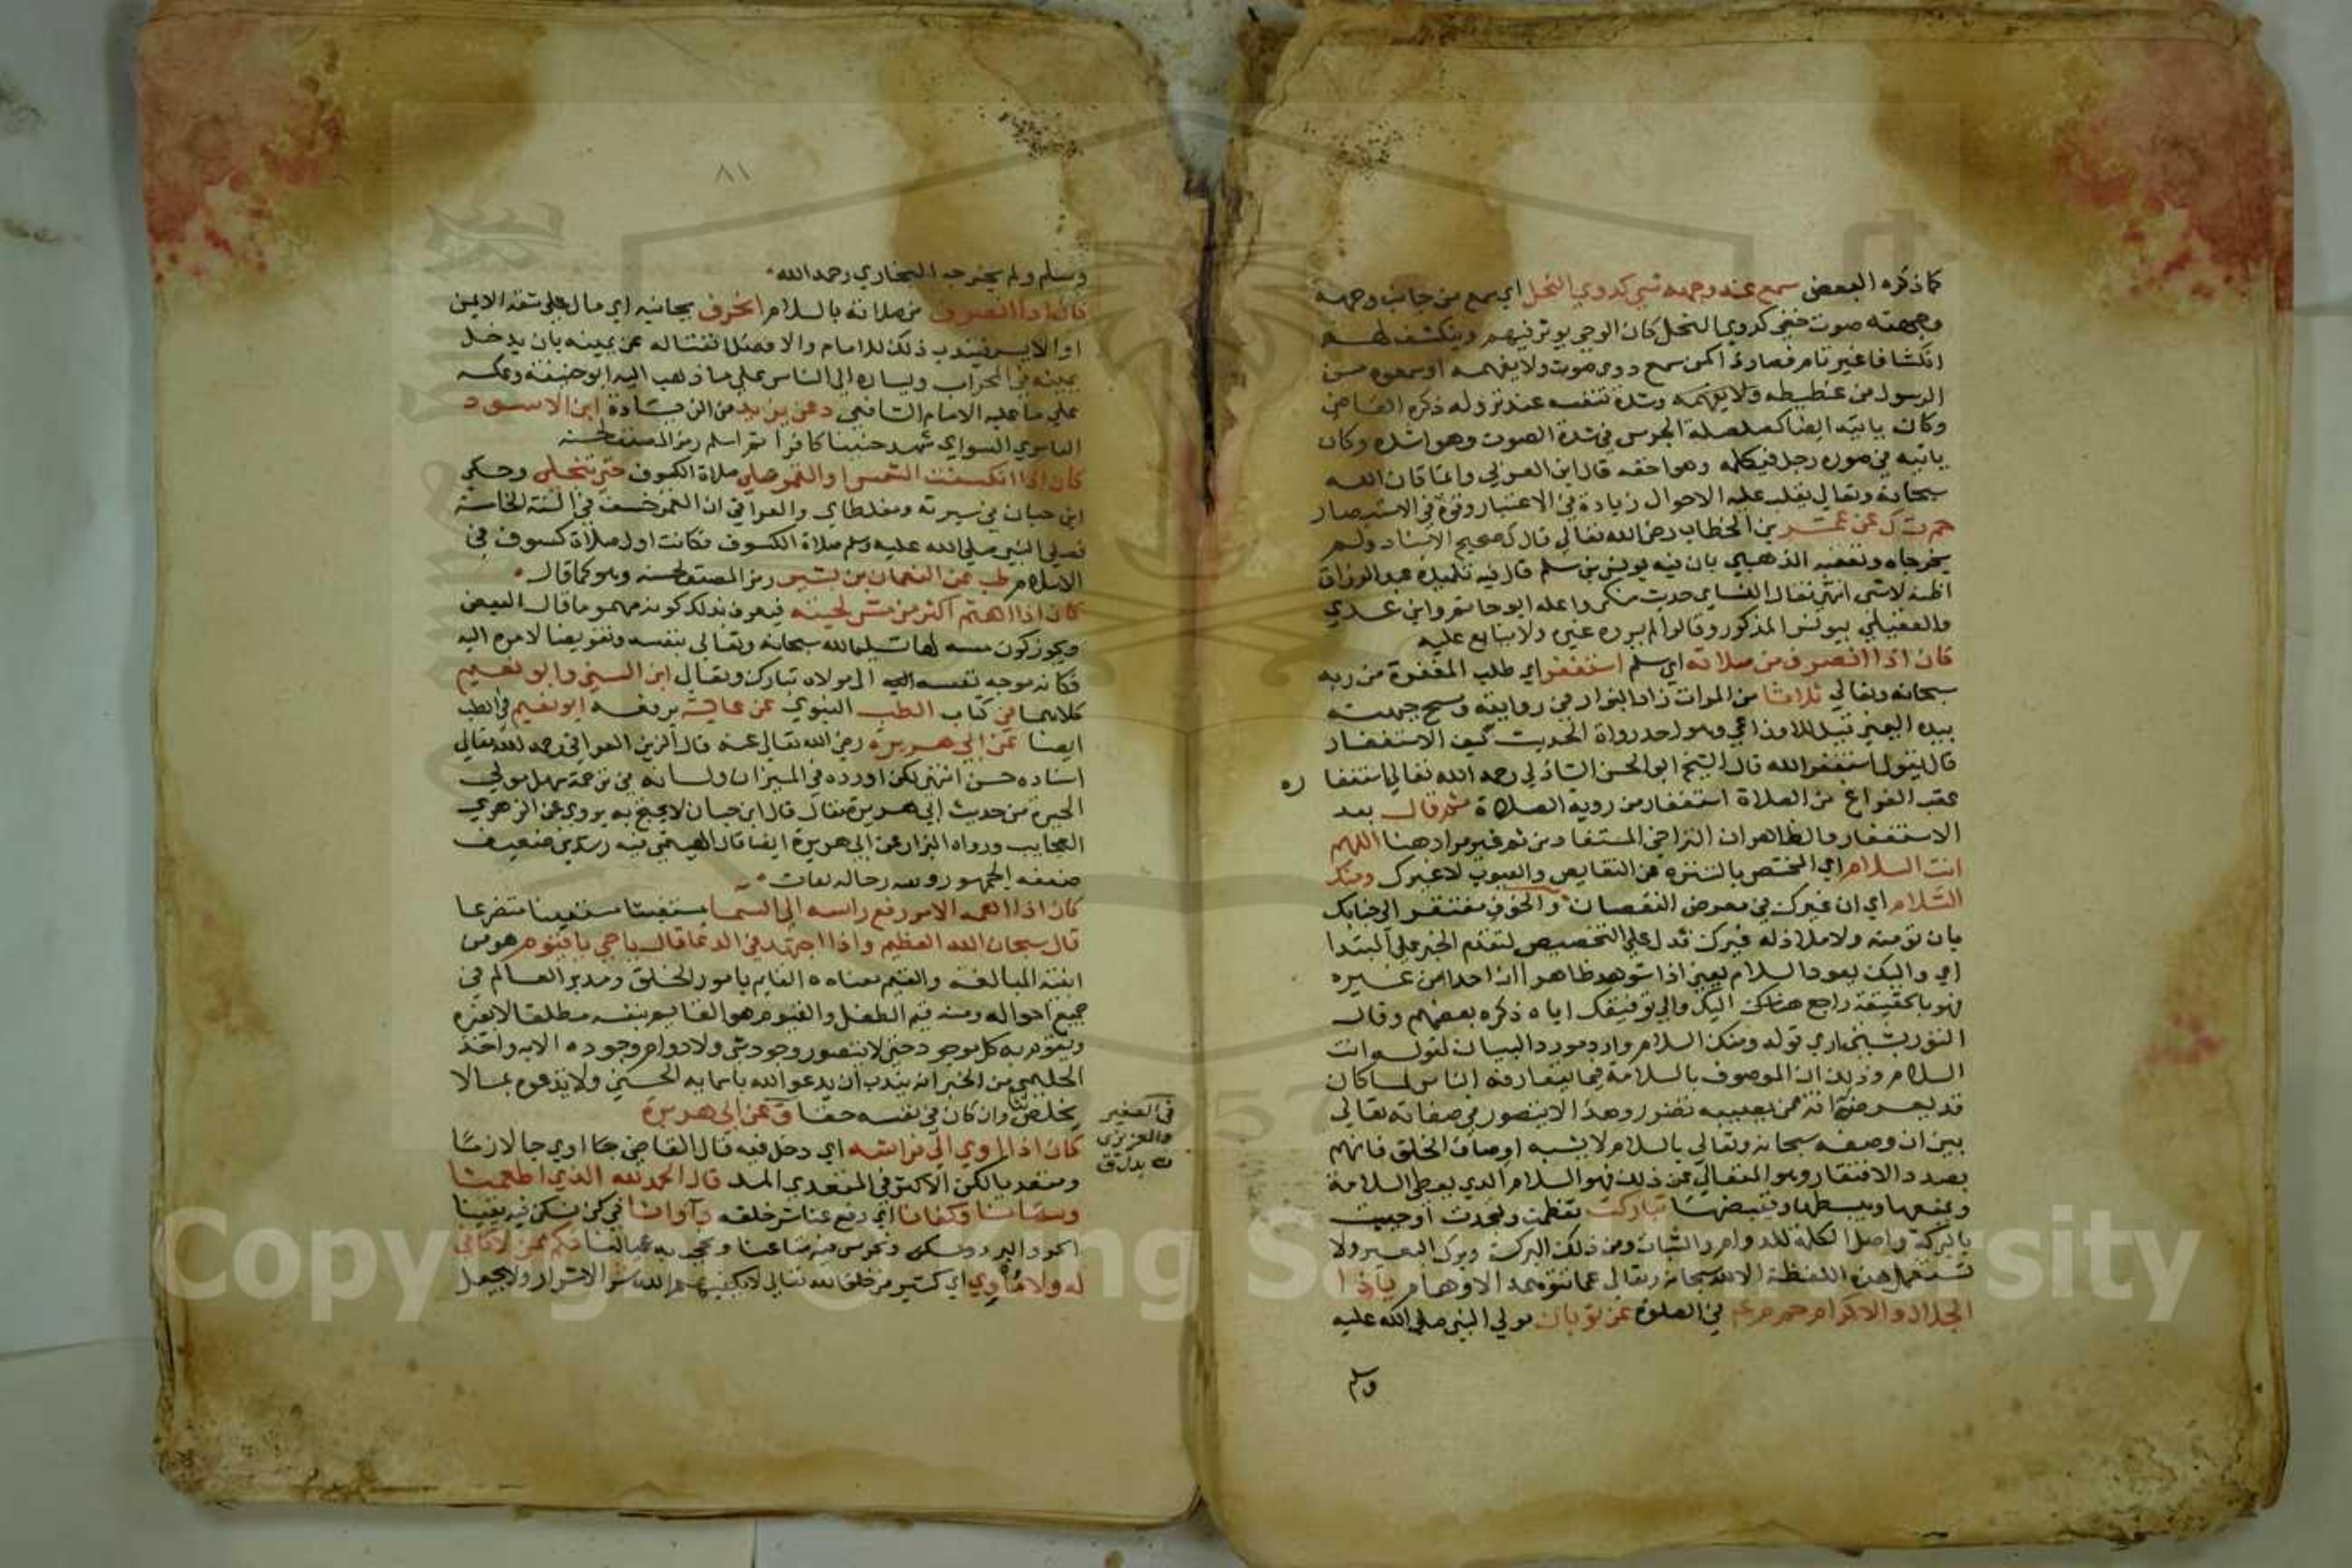 كما ذكره البعض سمع عند وجهه شي كدوي النحل اي سمع من جانب وجهه
وجهته صوت خفي كدوي النحل كان الوحي يوثر فيهم وينكشف لهم
انكشافا غير تام فصاروا كمن سمع دوي صوت ولا يفهمه او سمعوه من
الرسول من غطيطه ولا يفهمه وشدة تنفسه عند نزوله ذكره القاضي
وكان ياتيه ايضا كصلصلة الجرس في شدة الصوت وهو اشده وكان
ياتيه في صورة رجل فيكلمه وهو اخفه قال ابن العربي وانما كان الله
سبحانه وتعالى يقلب عليه الاحوال زيادة في الاعتبار وقوة في الاستبصار
حم ت ك عن عمر بن الخطاب رضي الله تعالى قال ك صحيح الاسناد ولم
يخرجاه وتعقبه الذهبي بان فيه يونس بن سليم قال فيه تلميذه عبد الرزاق
اظنه لا شي انتهى فقال النساي حديث منكر واعله ابو حاتم وابن عدي
والعقيلي بيونس المذكور وقالوا لم يروه غيره ولا يتابع عليه
كان اذا انصرف من صلاته اي سلم استغفر اي طلب المغفرة من ربه
سبحانه وتعالى ثلاثا من المرات زاد البزار في روايته ومسح جبهته
بيده اليمنى قيل للاوزاعي وهو احد رواة الحديث كيف الاستغفار
قال يقول استغفر الله قال الشيخ ابو الحسن الشاذلي رحمه الله تعالى استغفا ره
عقب الفراغ من الصلاة استغفار من روية الصلاة ثم قال بعد
الاستغفار والظاهر ان التراخي المستفاد من ثم غير مراد هنا اللهم
انت السلام اي المختص بالتنزه عن النقايص والعيوب لا غيرك ومنك
السلام اي ان غيرك في معرض النقصان والخوف مفتقر الى جنابك
بان تومنه ولا ملاذ له غيرك فدل على التخصيص لتقدم الخبر على المبتدا
اي واليك يعود السلام يعني اذا شوهد ظاهرا ان احدا من غيره
فهو بالحقيقة راجع هنالك اليك والى توفيقك اياه ذكره بعضهم وقال
التوربشتي اري قوله ومنك السلام وارد مورد البيان لقوله انت
السلام وذلك ان الموصوف بالسلامة فيما يتعارفه الناس لما كان
قد يعرض له انه ممن يصيبه تضرر وهذا لا يتصور في صفاته تعالى
بين ان وصفه سبحانه وتعالى بالسلام لا يشبه اوصاف الخلق فانهم
بصدد الافتقار وهو المتعالي عن ذلك فهو السلام الذي يعطي السلامة
ويمنعها ويبسطها ويقبضها تباركت تعظمت وتمجدت او جيت
بالبركة واصل الكلمة للدوام والثبات ومن ذلك البركة وبرك البعير ولا
تستعمل هذه اللفظة الا لله سبحانه وتعالى عما تتوهمه الاوهام يا ذا
الجلال والاكرام حم م عم في الصلوة عن ثوبان مولى النبي صلى الله عليه
وسلم
٨١
وسلم ولم يخرجه البخاري رحمه الله
كان اذا انصرف من صلاته بالسلام انحرف بجانبه اي مال على شقه الايمن
او الايسر فيندب ذلك للامام والافضل انفتاله عن يمينه بان يدخل
يمينه في المحراب ويساره الى الناس على ما ذهب اليه ابو حنيفة وعكسه
على ما عليه الامام الشافعي د عن يزيد من الزيادة ابن الاسود
العامري السوائي شهد حنينا كافرا ثم اسلم رمز المصنف لحسنه
كان اذا انكسفت الشمس او القمر صلى صلاة الكسوف حتى تنجلى وحكى
ابن حبان في سيرته ومغلطاي والعراقي ان القمر خسف في السنة الخامسة
فصلى النبي صلى الله عليه وسلم صلاة الكسوف فكانت اول صلاة كسوف في
الاسلام طب عن النعمان بن بشير رمز المصنف لحسنه وهو كما قال
كان اذا اهتم اكثر من مس لحيته فيعرف بذلك كونه مهموما قال البعض
ويجوز كون مسه لها تسليما لله سبحانه وتعالى بنفسه وتفويضا لامره اليه
فكانه موجه نفسه اليه الى مولاه تبارك وتعالى ابن السني وابو نعيم
كلاهما في كتاب الطب النبوي عن عائشة يرفعه ابو نعيم في الطب
ايضا عن ابي هريرة رضي الله تعالى عنه قال الزين العراقي رحمه الله تعالى
اسناده حسن انتهى لكن اورده في الميزان ولسانه في ترجمة سهل مولى
المغيرة من حديث ابي هريرة فقال قال ابن حبان لا يحتج به يروي عن الزهري
العجايب ورواه البزار عن ابي هريرة ايضا قال الهيثمي فيه رشدين ضعيف
ضعفه الجمهور وبقية رجاله ثقات
كان اذا اهمه الامر رفع راسه الى السما مستغيثا مستعينا متضرعا
قال سبحان الله العظيم واذا اجتهد في الدعا قال يا حي يا قيوم هو من
ابنية المبالغة والقيم معناه القايم بامور الخلق ومدبر العالم في
جميع احواله ومنه قيم الطفل والقيوم هو القايم بنفسه مطلقا لا بغيره
ويقوم به كل موجود حتى لا يتصور وجود شي ولا دوام وجوده الا به واخذ
الحليمي من الخبر انه يندب ان يدعو الله باسمايه الحسنى ولا يدعوه بما لا
يخلص ثنا وان كان في نفسه حقا ت عن ابي هريرة
كان اذا اوى الى فراشه اي دخل فيه قال القاضي جا اوى جا لازما
ومتعديا لكن الاكثر في المتعدي المد قال الحمد لله الذي اطعمنا
وسقانا وكفانا اي دفع عنا شر خلقه وآوانا في كن نسكن فيه يقينا
الحر والبرد ونحرس فيه متاعنا ونحجب به عيالنا فكم ممن لا كافي
له ولا مأوي اي كثير من خلق الله تعالى لا يكفيهم الله شر الاشرار ولا يجعل
في الصغير
والعزيزى
ت بدل ق